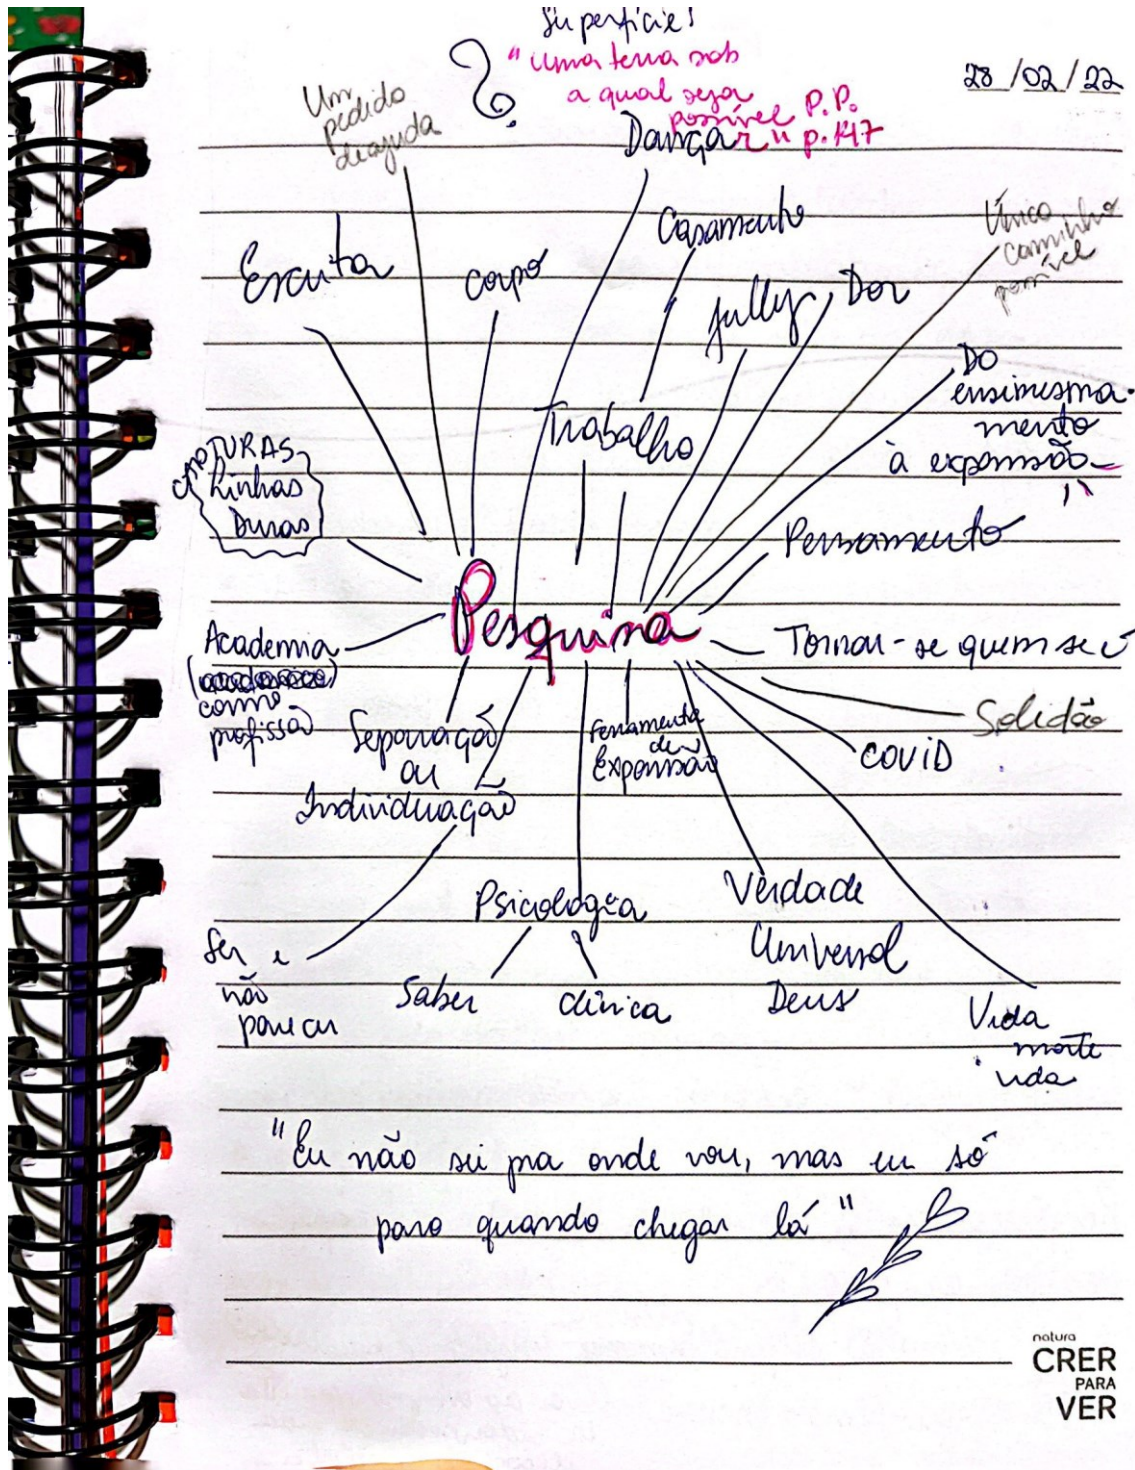 Superfícies
"uma terra sob
a qual seja
possível P.P.
Dançar" p.147
28/02/22
Um
pedido
de ajuda
Casamento
Único
caminho
possível
Escuta
corpo
Jully
Dor
Do
ensimesma-
mento
à expansão
Trabalho
TURAS
Linhas
Duras
Pensamento
Pesquisa
Academia
como
profissão
Tornar-se quem se é
Solidão
Separação
ou
Individuação
Ferramenta
de
Expansão
COVID
Psicologia
Verdade
Universal
Deus
Ser e
não
parecer
Saber
clínica
Vida
morte
vida
"Eu não sei pra onde vou, mas eu só
paro quando chegar lá"
natura
CRER
PARA
VER